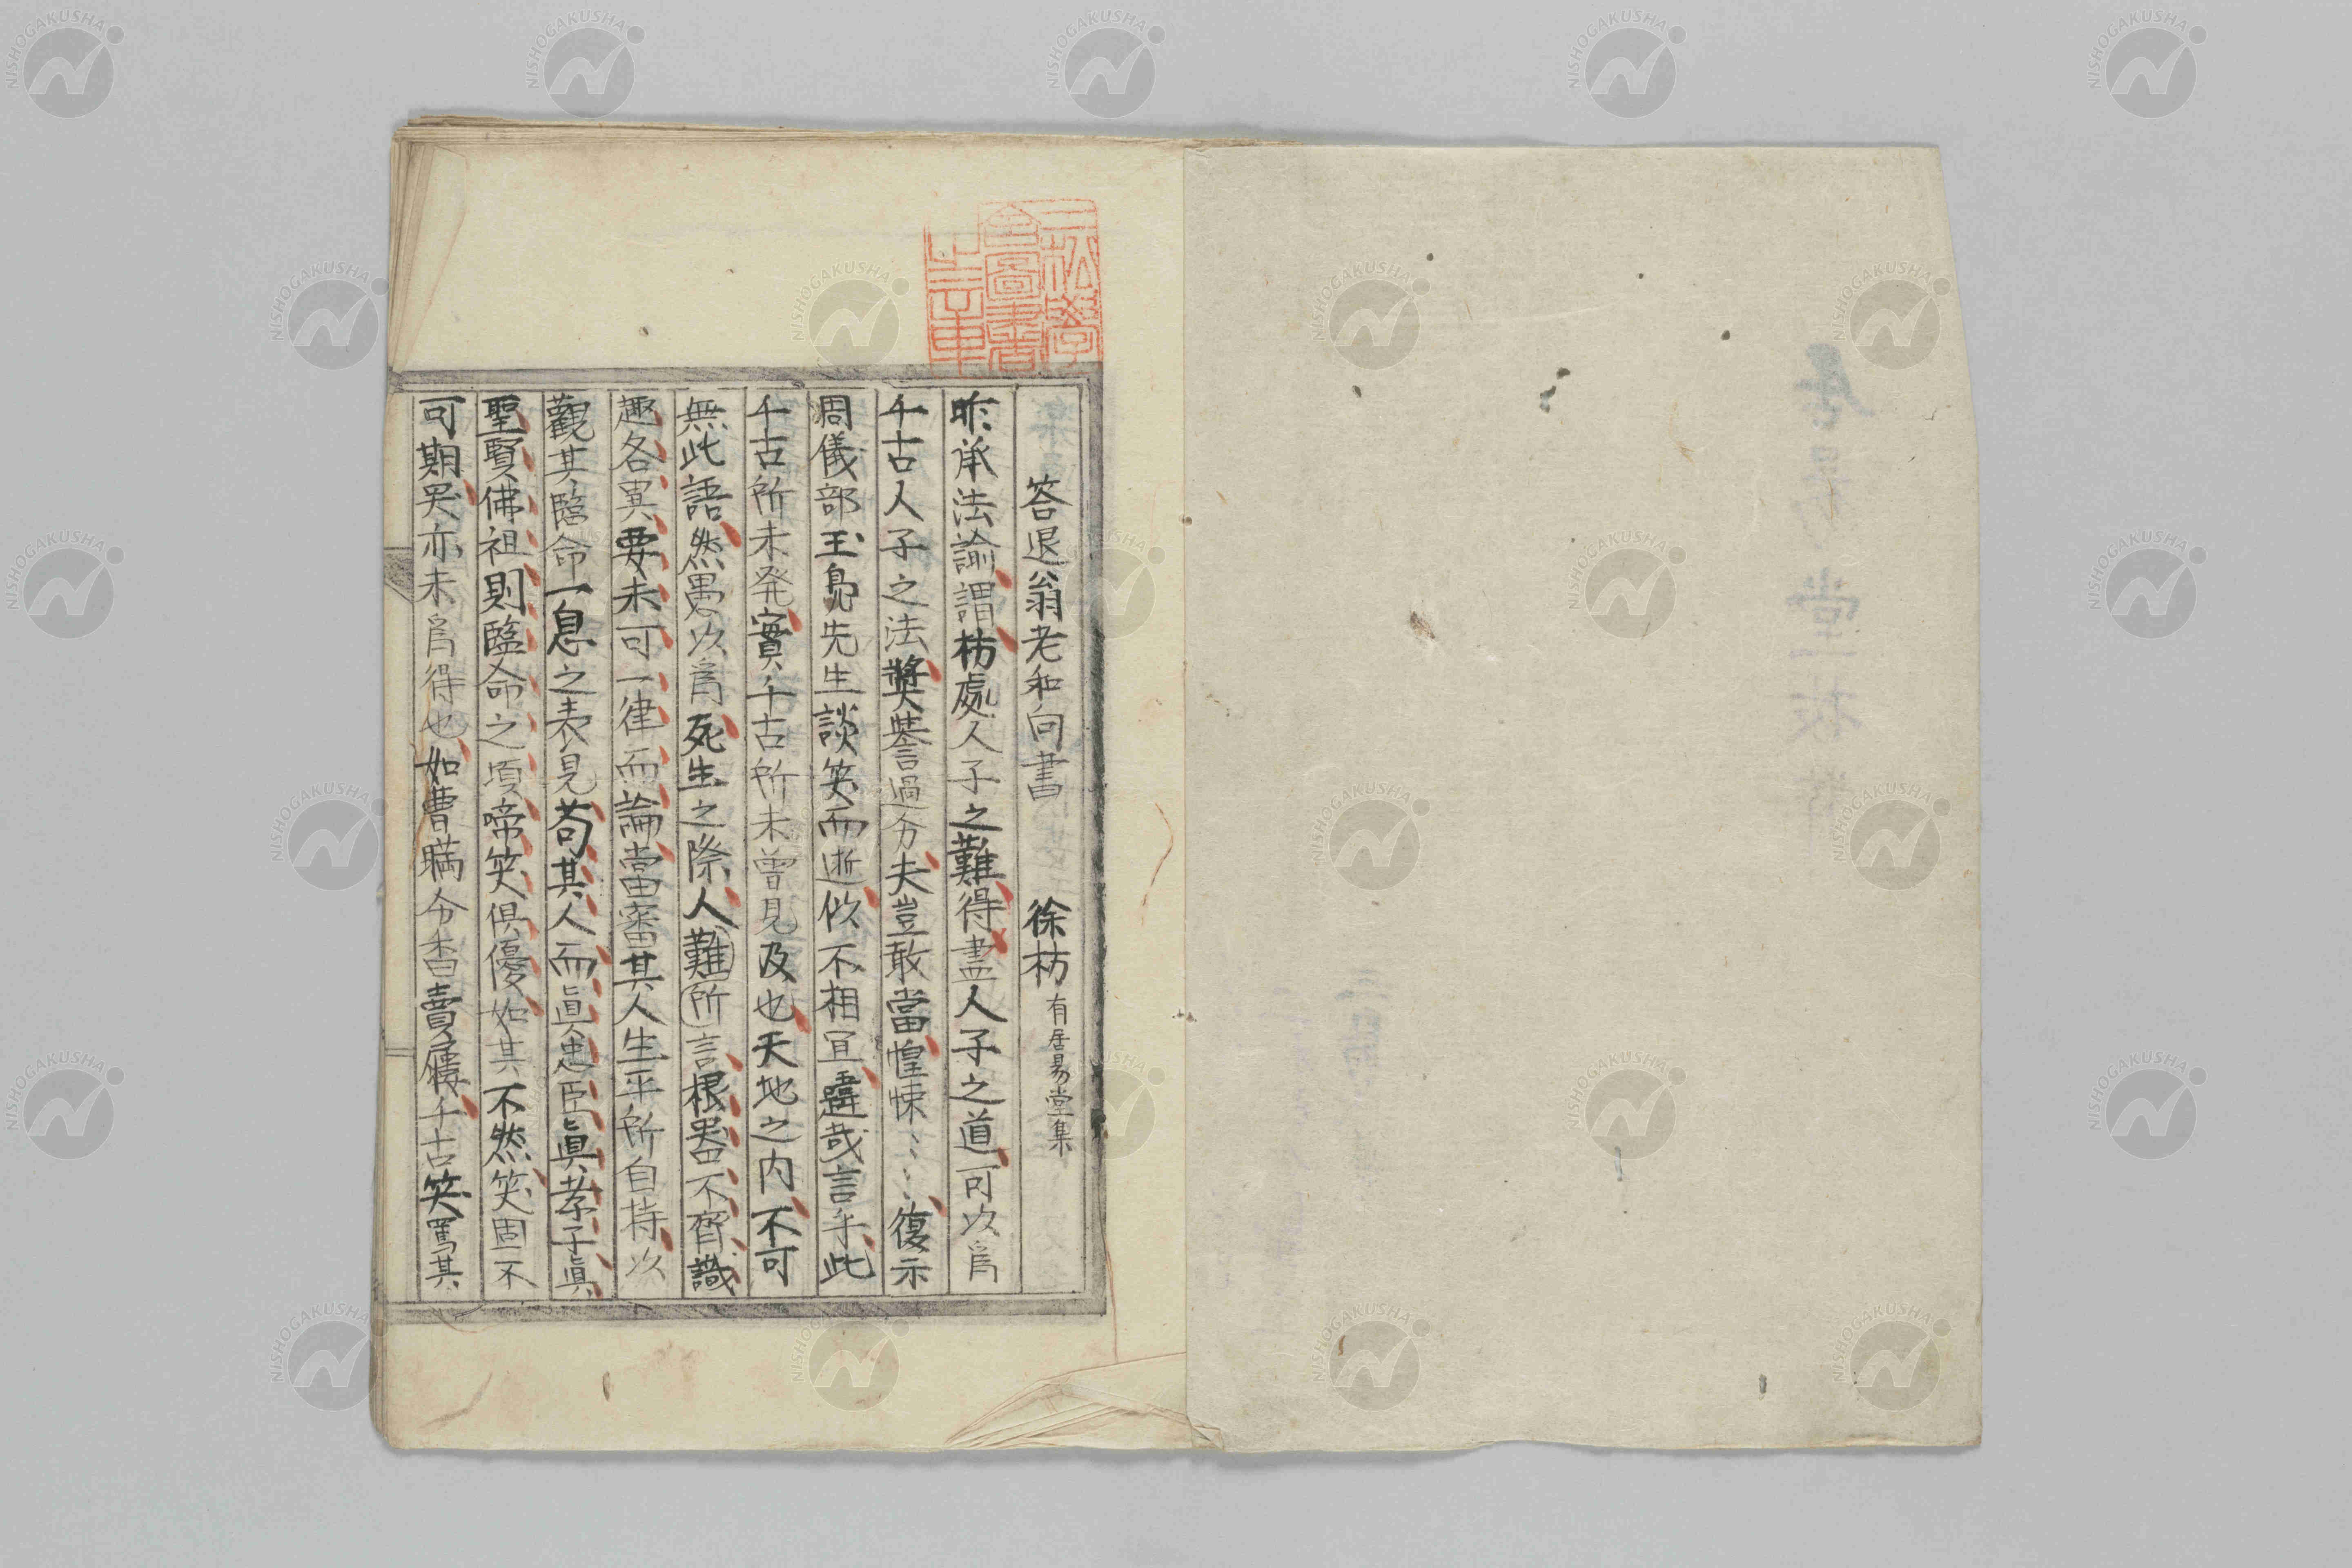 答退翁老和尚書 徐枋 有居易堂集
昨承法諭謂枋處人子之難得盡人子之道可以爲
千古人子之法奬譽過分夫豈敢當惶悚〻〻復示
周儀部玉鳧先生談笑而逝似不相宜韙哉言乎此
千古所未発實千古所未曾見及也天地之内不可
無此語然愚以爲死生之際人難所言根器不齊識
趣各異要未可一律而論當審其人生平所自持以
觀其臨命一息之表見苟其人而眞忠臣眞孝子眞
聖賢佛祖則臨命之頃啼笑俱優如其不然笑固不
可期哭亦未爲得也如曹瞞分香賣履千古笑罵其
居易堂
NISHOGAKUSHA